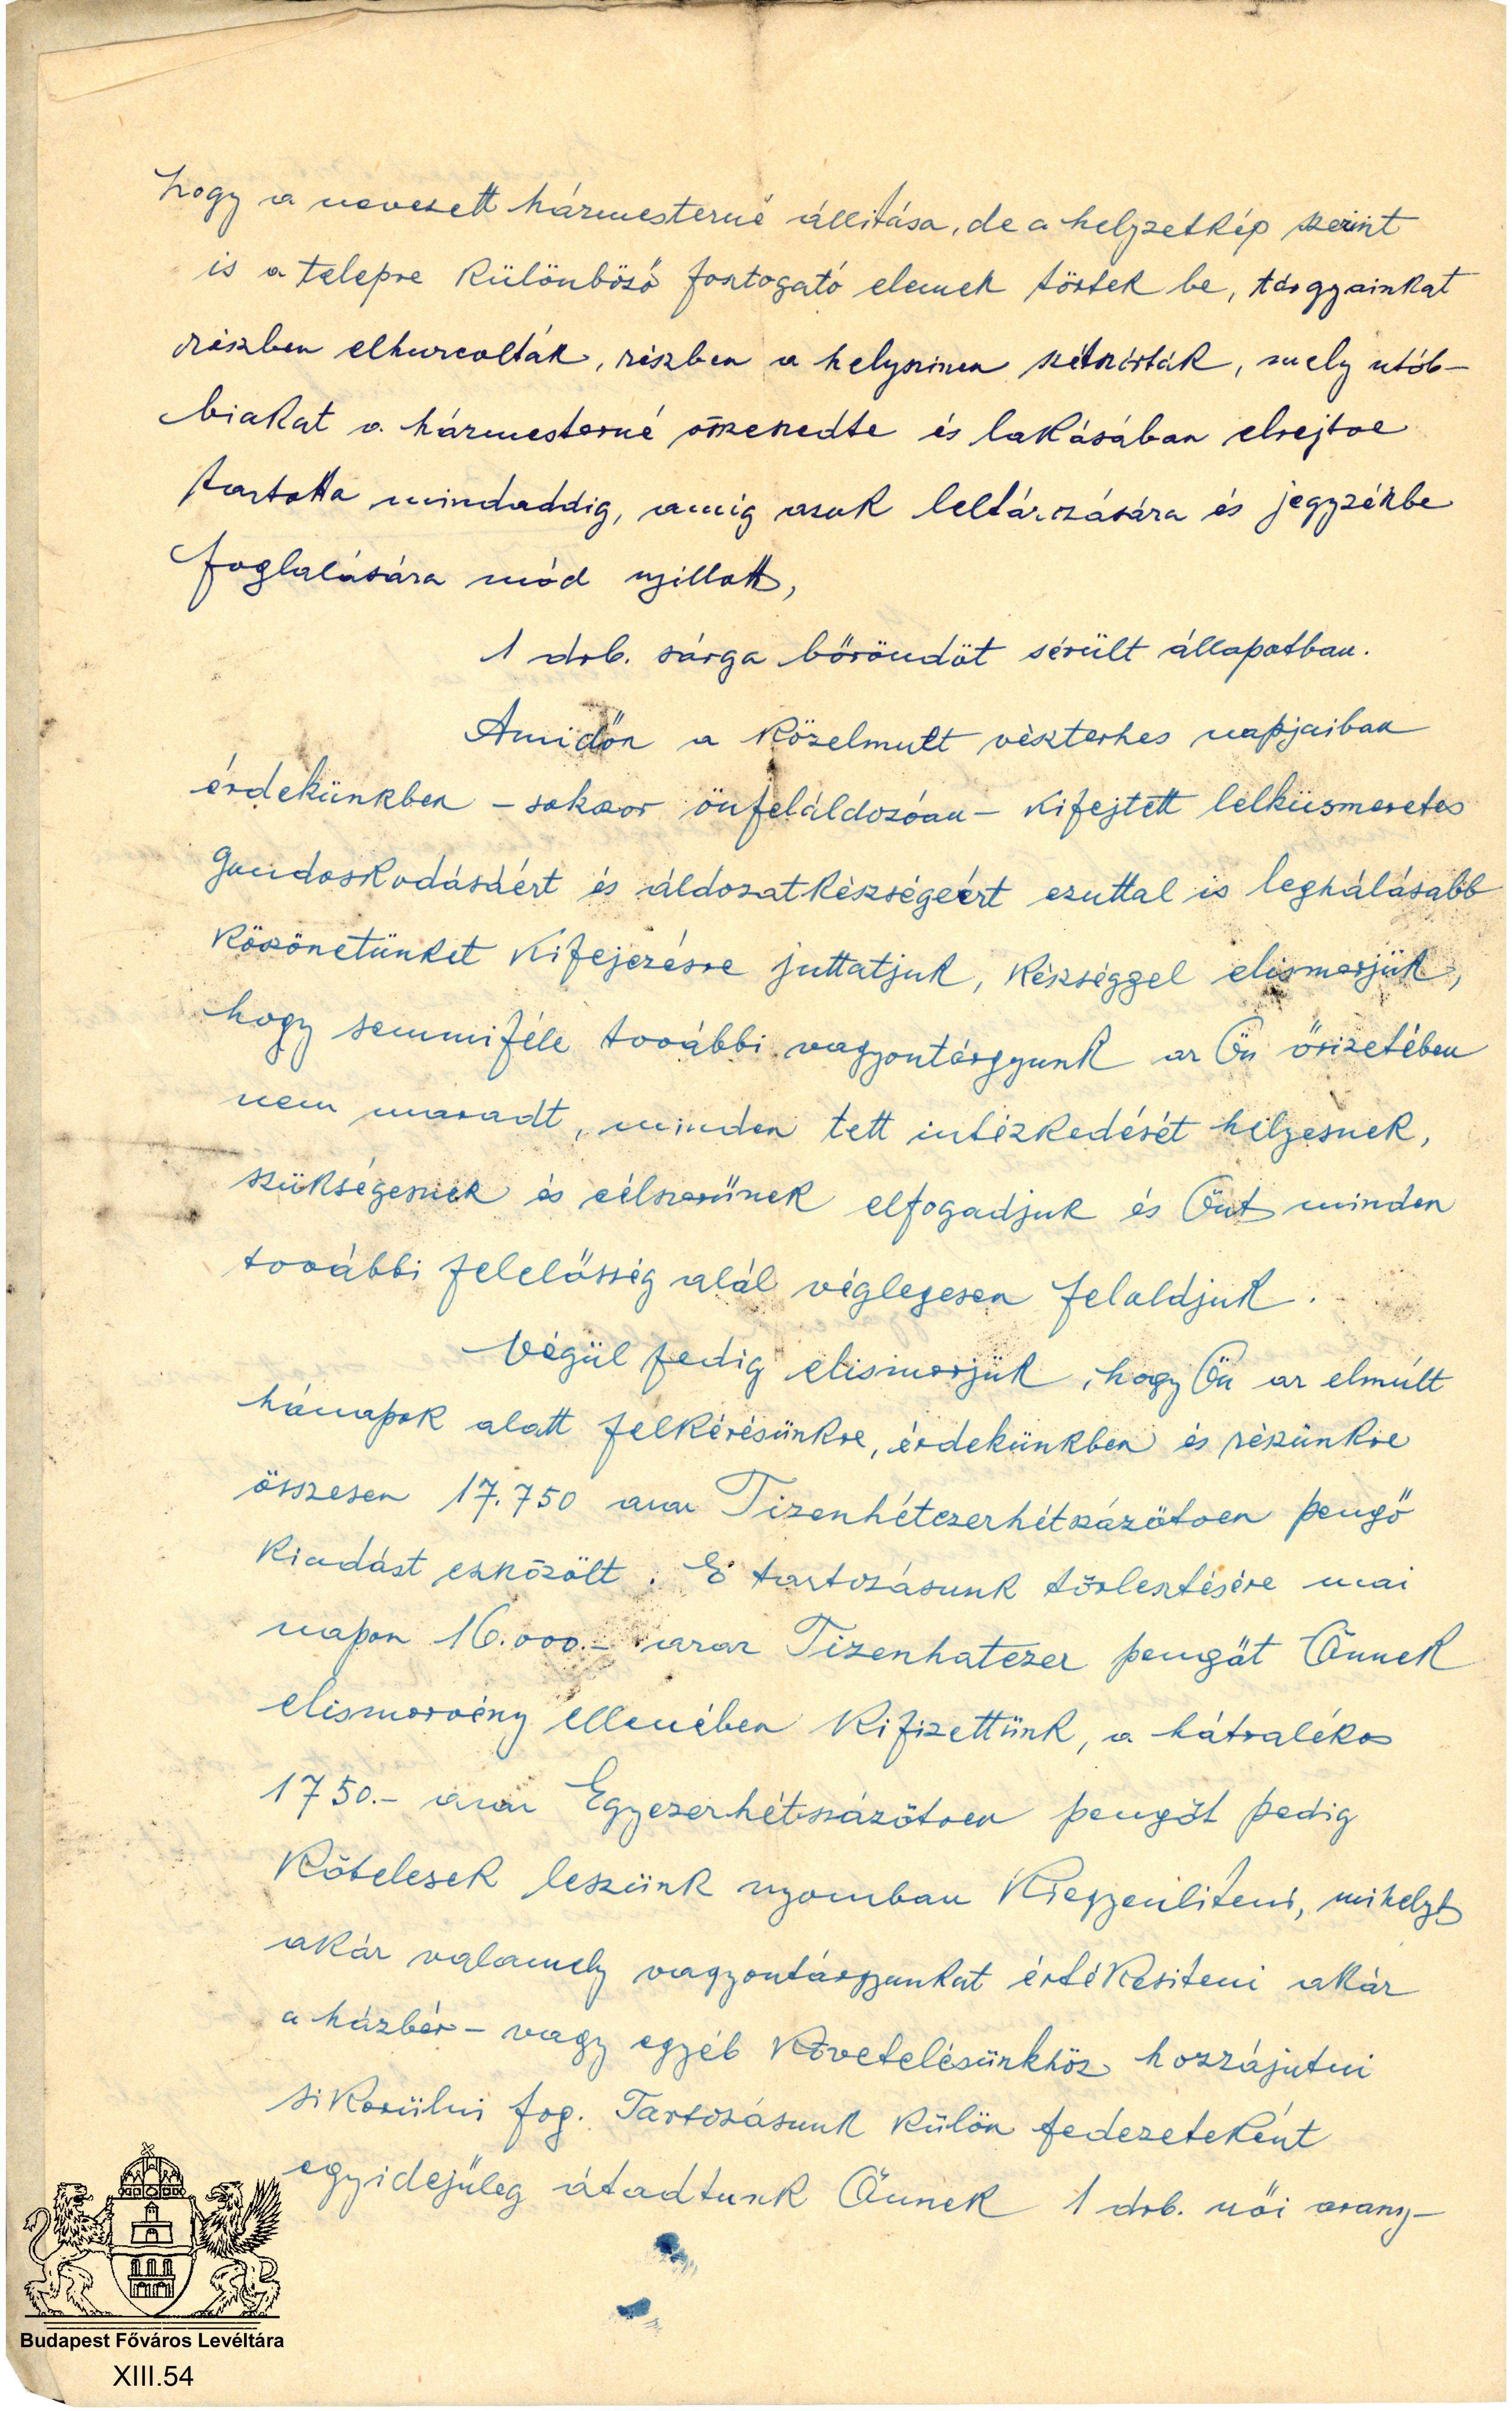 hogy a nevezett házmesterné állitása, de a helyzetkép szerint
is a telepre különböző fosztogató elemek törtek be, tárgyainkat
részben elhurcolták, részben a helyszinen szétszórták, mely utób-
biakat a házmesterné összeszedte és lakásában elrejtve
tartotta mindaddig, amig azok leltározására és jegyzékbe
foglalására mód nyillott,
1 drb. sárga bőröndöt sérült állapotban.
Amidőn a közelmult vészterhes napjaiban
érdekünkben – sokszor önfeláldozóan – kifejtett lelkiismeretes
gondoskodásáért és áldozatkészségéért ezuttal is leghálásabb
köszönetünket kifejezésre juttatjuk, készséggel elismerjük,
hogy semmiféle további vagyontárgyunk az Ön őrizetében
nem maradt, minden tett intézkedését helyesnek,
szükségesnek és célszerűnek elfogadjuk és Önt minden
további felelősség alól véglegesen feloldjuk.
Végül pedig elismerjük, hogy Ön az elmúlt
hónapok alatt felkérésünkre, érdekünkben és részünkre
összesen 17.750 azaz Tizenhétezerhétszázötven pengő
kiadást eszközölt. E tartozásunk törlesztésére mai
napon 16.000.– azaz Tizenhatezer pengőt Önnek
elismervény ellenében kifizettünk, a hátralékos
1750.– azaz Egyezerhétszázötven pengőt pedig
kötelesek leszünk nyomban kiegyenlíteni, mihelyt
akár valamely vagyontárgyunkat értékesiteni akár
a házbér– vagy egyéb követelésünkhöz hozzájutni
sikerülni fog. Tartozásunk külön fedezeteként
egyidejűleg átadtunk Önnek 1 drb. női arany–
Budapest Főváros Levéltára
XIII.54